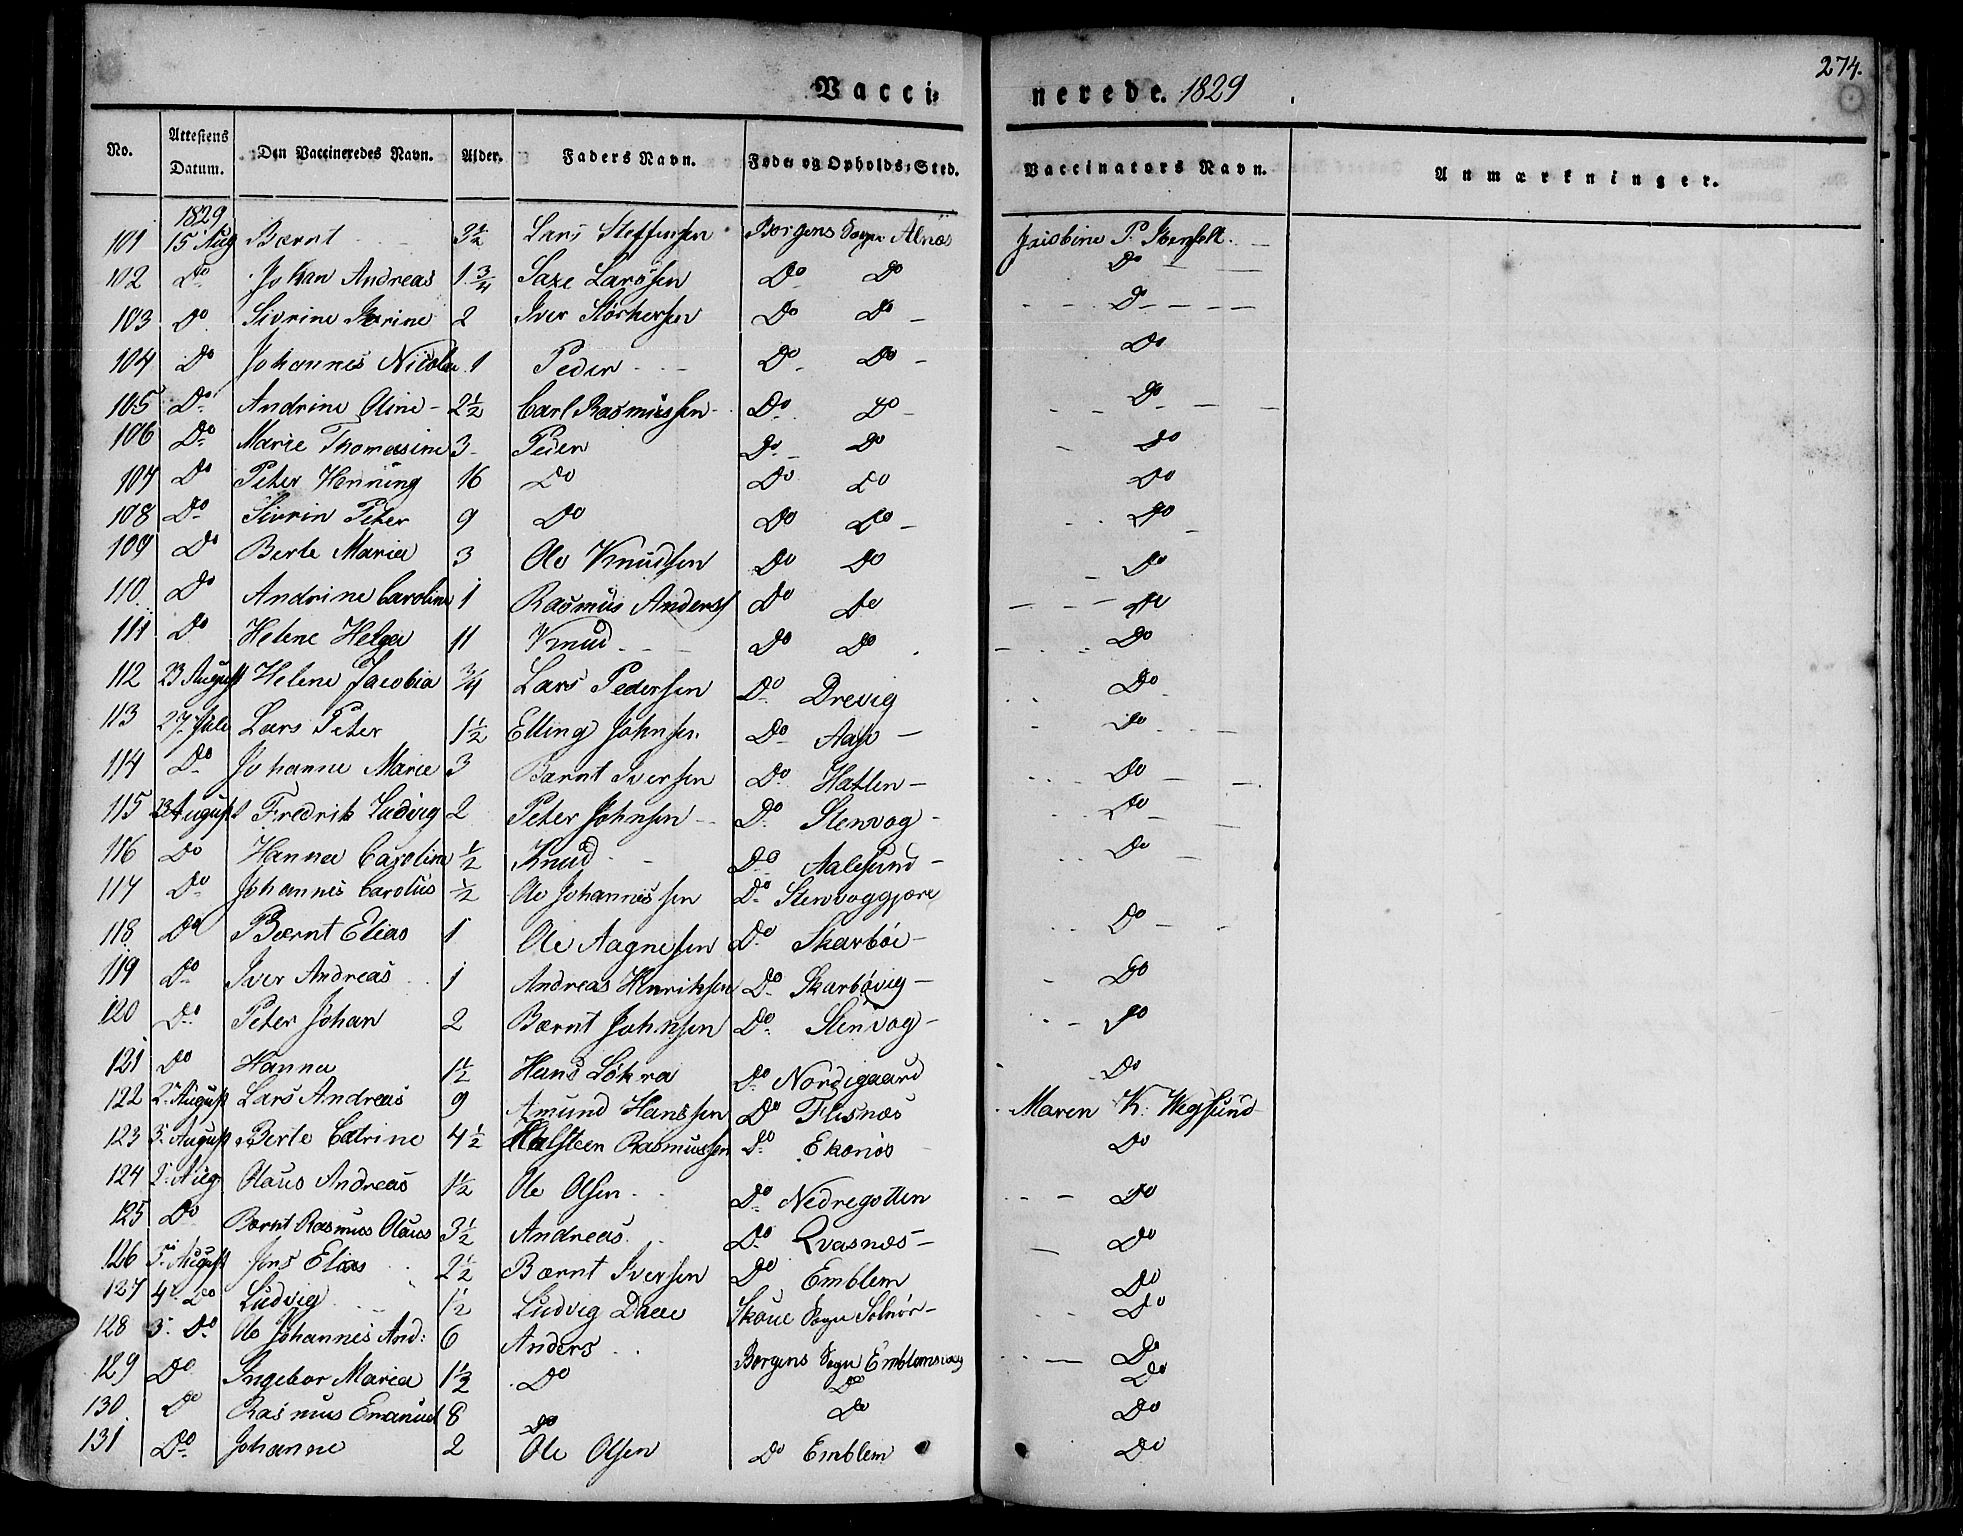 274.
Vacci= nerede. 1829
No. Attestens Datum. Den Vaccineredes Navn. Alder. Faders Navn. Føde= og Opholds=Sted. Vaccinators Navn. Anmærkninger.
1829
101 15 Aug Bærnt 3½ Lars Steffensen Borgens Sogn Alnös Jacobine P.
102 Do Johan Andreas 1¾ Saxe Larssen Do Do Do
103 Do Sivrine 2 Iver Do Do Do
104 Do Johannes Nicolai 1 Peder Do Do Do
105 Do Andrine Oline 2½ Carl Rasmussen Do Do Do
106 Do Marie Thomasine 3 Peder Do Do Do
107 Do Peter Henning 16 Do Do Do Do
108 Do Sivrin Peter 9 Do Do Do Do
109 Do Berte Maria 3 Ole Knudsen Do Do Do
110 Do Andrine Caroline 1 Rasmus Anders Do Do Do
111 Do Helene Helga 11 Knud Do Do Do
112 23 August Helene Jacobia ¾ Lars Pedersen Do Drevig Do
113 27. Juli Lars Peter 1½ Elling Johnsen Do Aase Do
114 Do Johanne Marie 3 Bærnt Iversen Do Hatlen Do
115 23 August Fredrik Ludvig 2 Peter Johnsen Do Stenvog Do
116 Do Hanna Caroline ½ Knud Do Aalesund Do
117 Do Johannes Carolus ½ Ole Johannessen Do Stenvoggjære
118 Do Bærnt Elias 1 Ole Aagnesen Do Skarböe Do
119 Do Iver Andreas 1 Andreas Henriksen Do Skarbövig Do
120 Do Peter Johan 2 Bærnt Johnsen Do Stenvog Do
121 Do Hanna 1½ Hans Lökra Do Nordigaard Do
122 2. August Lars Andreas 9 Amund Hanssen Do Flisnæs Maren K. Wegsund
123 5. August Berte Catrine 4½ Halsteen Rasmussen Do Ekonös Do
124 2. Aug Olaus Andreas 1½ Ole Olsen Do Nedregotten Do
125 Do Bærnt Rasmus Olaus 3½ Andreas Do Qvasnæs Do
126 5. August Jens Elias 2½ Bærnt Iversen Do Emblem Do
127 4. Do Ludvig 1½ Ludvig Daae Skoue Sogn Solnör Do
128 3. Do Ole Johannes And: 6 Anders Borgens Sogn Emblemsvaag Do
129 Do Ingebor Maria 1½ Do Do Do
130 Do Rasmus Emanuel 8 Do Do Do
131 Do Johanne 2 Ole Olsen Do Emblem Do